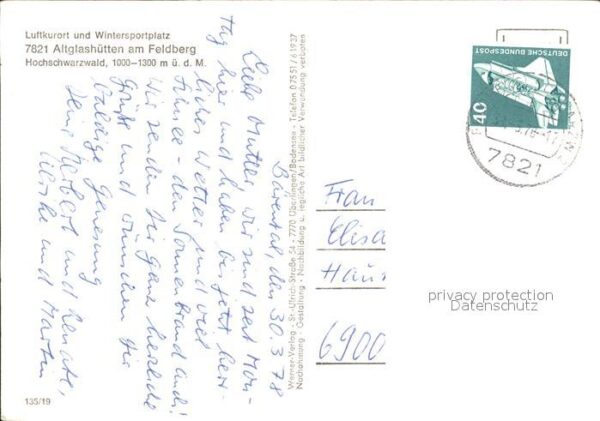 Luftkurort und Wintersportplatz
7821 Altglashütten am Feldberg
Hochschwarzwald, 1000–1300 m ü. d. M.
Bärental, den 30.3.78
Liebe Mutter, wir sind seit Mon-
tag hier und haben bis jetzt herr-
liches Wetter und viel
Schnee - den Sonnenbrand auch!
Wir senden Dir ganz herzliche
Grüße und wünschen Dir
baldige Genesung
Deine Herbert und Renate,
und Martin
135/19
Werner-Verlag · St.-Ulrich-Straße 54 · 7770 Überlingen/Bodensee · Telefon 0 75 51 / 6 19 37
Nachahmung · Gestaltung · Nachbildung u. jegliche Art bildlicher Verwendung verboten
DEUTSCHE BUNDESPOST
40
7821
Frau
Elisa
Haus
6900
privacy protection
Datenschutz